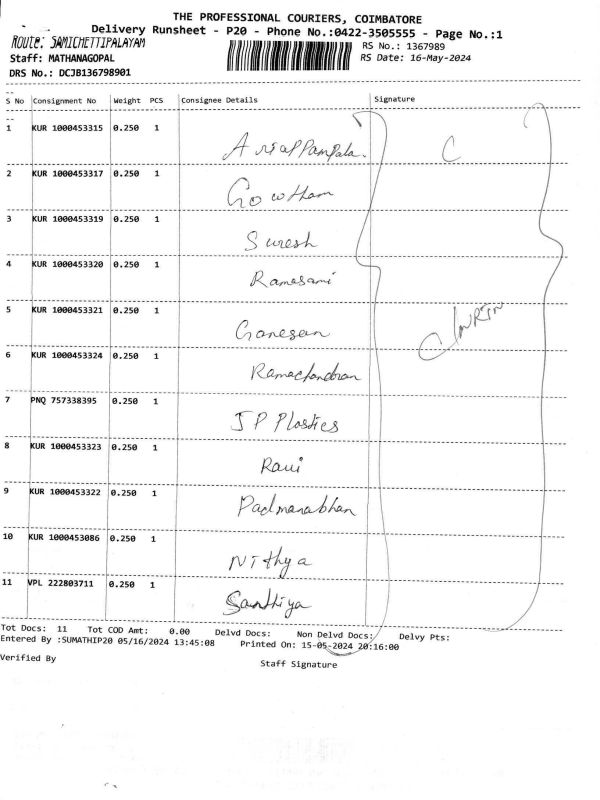 THE PROFESSIONAL COURIERS, COIMBATORE
Delivery Runsheet - P20 - Phone No.:0422-3505555 - Page No.:1
ROUTE: SAMICHETTIPALAYAM
RS No.: 1367989
Staff: MATHANAGOPAL
RS Date: 16-May-2024
DRS No.: DCJB136798901
S No Consignment No Weight PCS Consignee Details Signature
1 KUR 1000453315 0.250 1
2 KUR 1000453317 0.250 1
Gowtham
3 KUR 1000453319 0.250 1
Suresh
4 KUR 1000453320 0.250 1
Ramasami
5 KUR 1000453321 0.250 1
Ganesan
6 KUR 1000453324 0.250 1
Ramachandran
7 PNQ 757338395 0.250 1
JP Plastics
8 KUR 1000453323 0.250 1
Ravi
9 KUR 1000453322 0.250 1
Padmanabhan
10 KUR 1000453086 0.250 1
Nithya
11 VPL 222803711 0.250 1
Santhiya
Tot Docs: 11 Tot COD Amt: 0.00 Delvd Docs: Non Delvd Docs: Delvy Pts:
Entered By :SUMATHIP20 05/16/2024 13:45:08 Printed On: 15-05-2024 20:16:00
Verified By Staff Signature